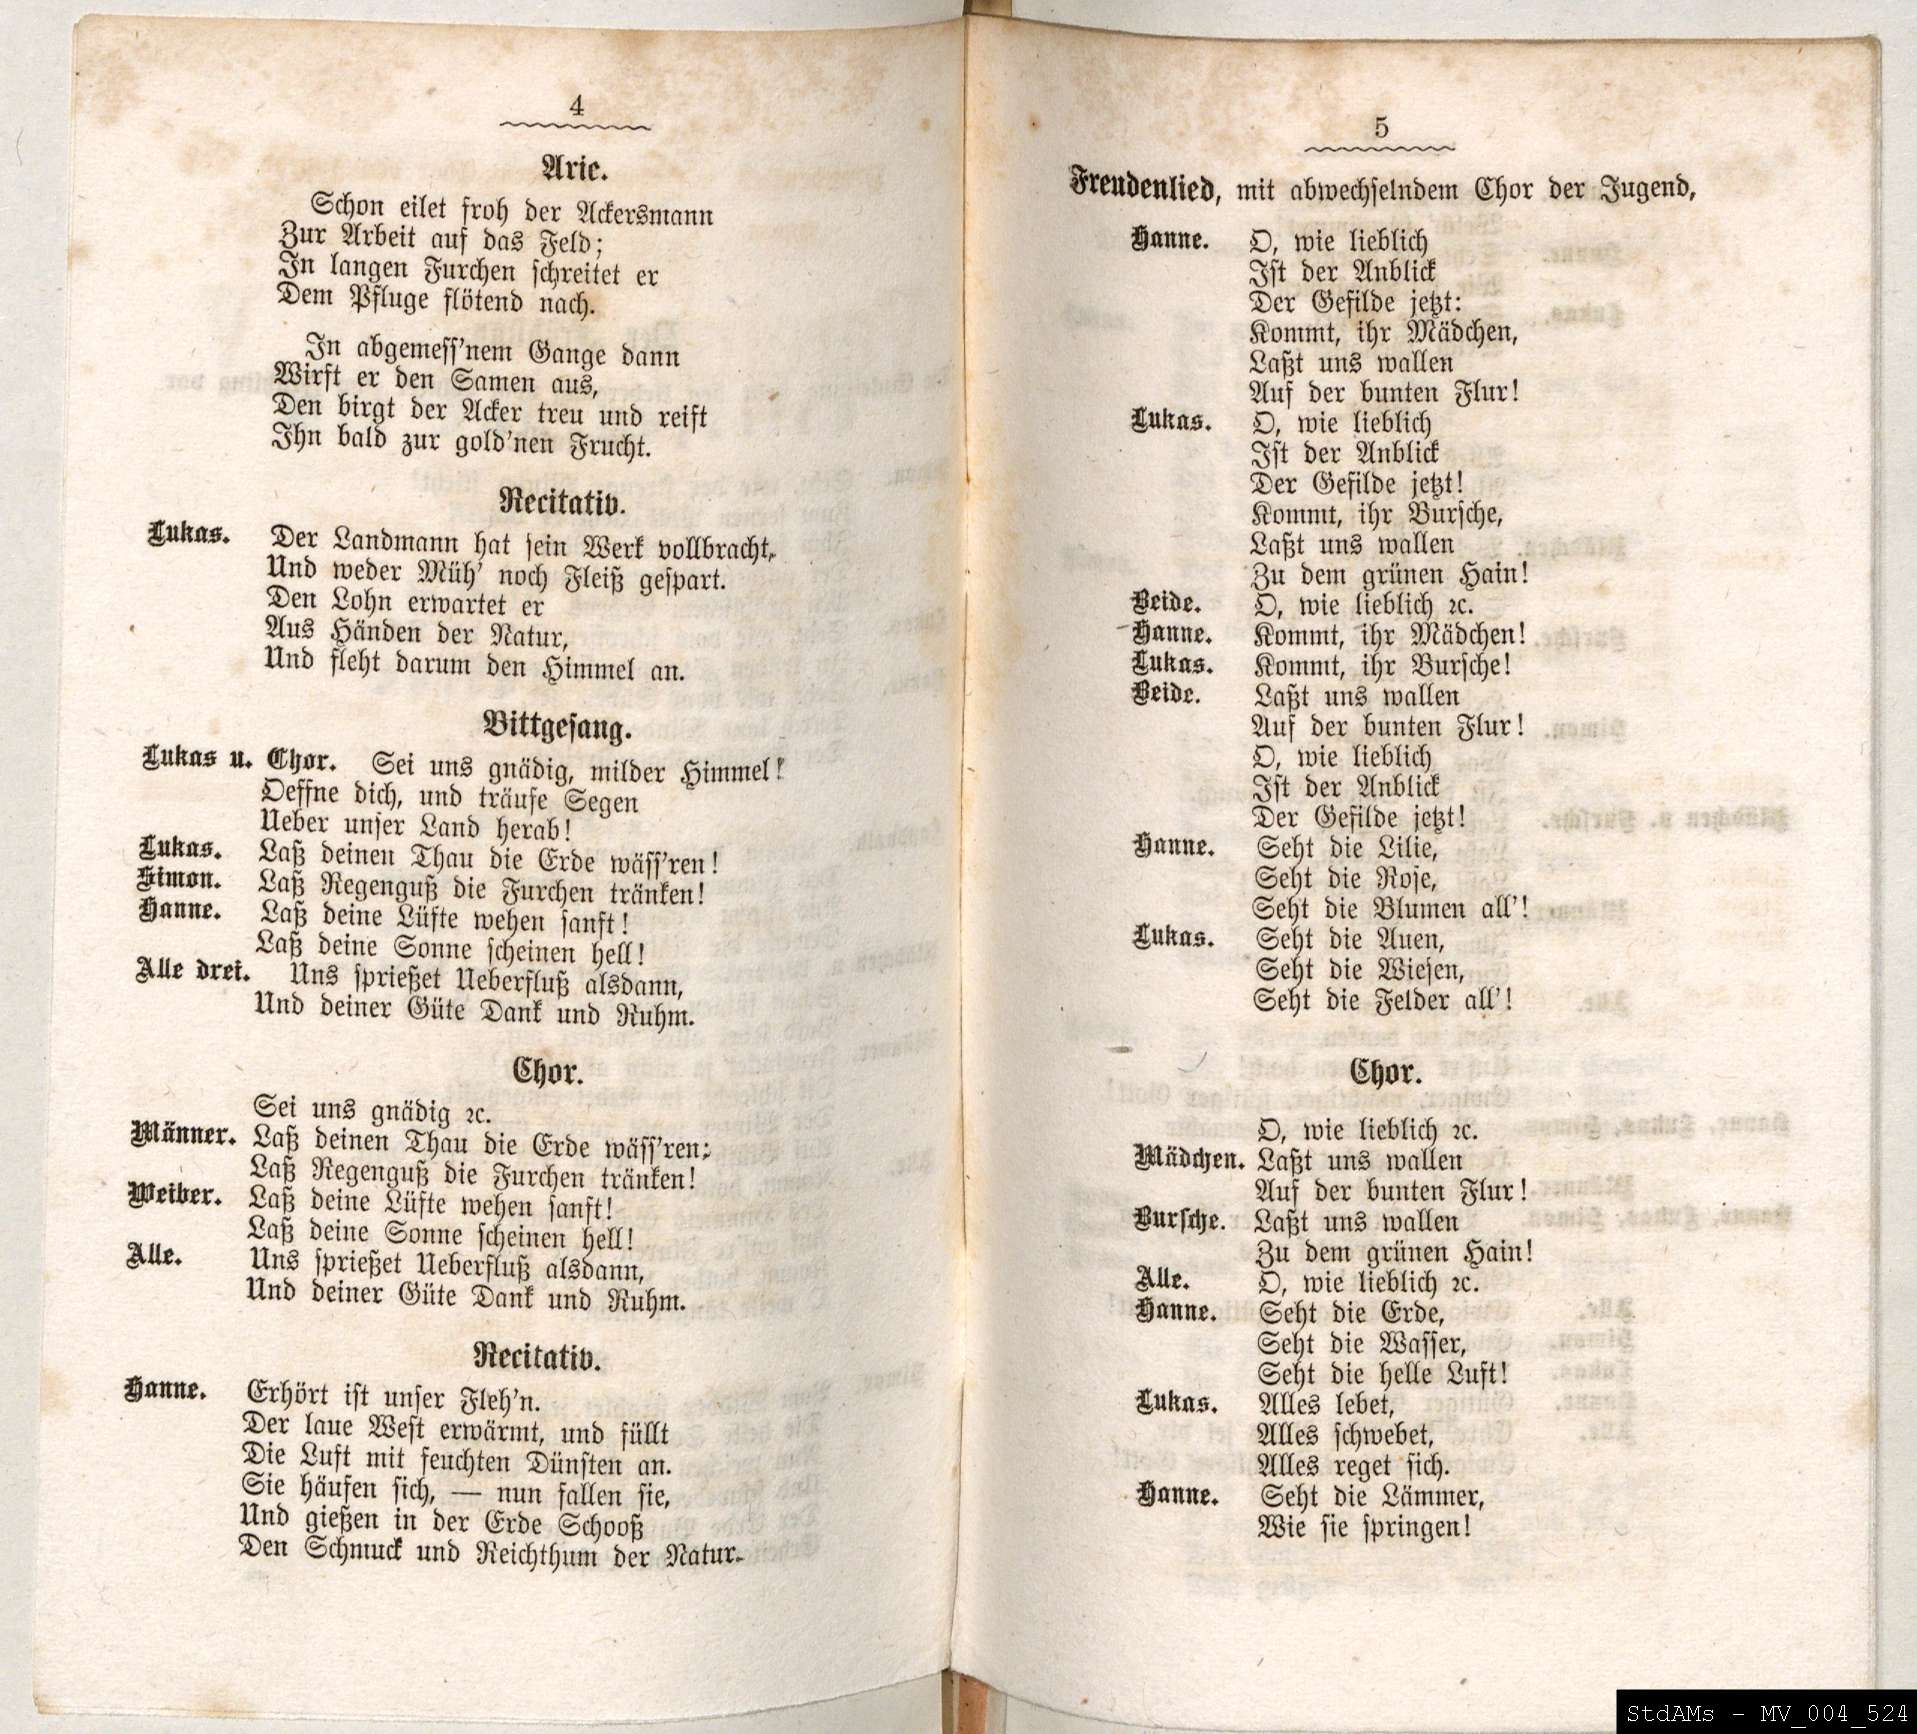 4
Arie.
Schon eilet froh der Ackersmann
Zur Arbeit auf das Feld;
In langen Furchen schreitet er
Dem Pfluge flötend nach.
In abgemess'nem Gange dann
Wirft er den Samen aus,
Den birgt der Acker treu und reift
Ihn bald zur gold'nen Frucht.
Recitativ.
Lukas. Der Landmann hat sein Werk vollbracht,
Und weder Müh' noch Fleiß gespart.
Den Lohn erwartet er
Aus Händen der Natur,
Und fleht darum den Himmel an.
Bittgesang.
Lukas u. Chor. Sei uns gnädig, milder Himmel!
Oeffne dich, und träufe Segen
Ueber unser Land herab!
Lukas. Laß deinen Thau die Erde wäss'ren!
Simon. Laß Regenguß die Furchen tränken!
Hanne. Laß deine Lüfte wehen sanft!
Laß deine Sonne scheinen hell!
Alle drei. Uns sprießet Ueberfluß alsdann,
Und deiner Güte Dank und Ruhm.
Chor.
Sei uns gnädig ꝛc.
Männer. Laß deinen Thau die Erde wäss'ren;
Laß Regenguß die Furchen tränken!
Weiber. Laß deine Lüfte wehen sanft!
Laß deine Sonne scheinen hell!
Alle. Uns sprießet Ueberfluß alsdann,
Und deiner Güte Dank und Ruhm.
Recitativ.
Hanne. Erhört ist unser Fleh'n.
Der laue West erwärmt, und füllt
Die Luft mit feuchten Dünsten an.
Sie häufen sich, — nun fallen sie,
Und gießen in der Erde Schooß
Den Schmuck und Reichthum der Natur.
5
Freudenlied, mit abwechselndem Chor der Jugend,
Hanne. O, wie lieblich
Ist der Anblick
Der Gefilde jetzt:
Kommt, ihr Mädchen,
Laßt uns wallen
Auf der bunten Flur!
Lukas. O, wie lieblich
Ist der Anblick
Der Gefilde jetzt!
Kommt, ihr Bursche,
Laßt uns wallen
Zu dem grünen Hain!
Beide. O, wie lieblich ꝛc.
Hanne. Kommt, ihr Mädchen!
Lukas. Kommt, ihr Bursche!
Beide. Laßt uns wallen
Auf der bunten Flur!
O, wie lieblich
Ist der Anblick
Der Gefilde jetzt!
Hanne. Seht die Lilie,
Seht die Rose,
Seht die Blumen all'!
Lukas. Seht die Auen,
Seht die Wiesen,
Seht die Felder all'!
Chor.
O, wie lieblich ꝛc.
Mädchen. Laßt uns wallen
Auf der bunten Flur!
Bursche. Laßt uns wallen
Zu dem grünen Hain!
Alle. O, wie lieblich ꝛc.
Hanne. Seht die Erde,
Seht die Wasser,
Seht die helle Luft!
Lukas. Alles lebet,
Alles schwebet,
Alles reget sich.
Hanne. Seht die Lämmer,
Wie sie springen!
StdAMs - MV_004_524